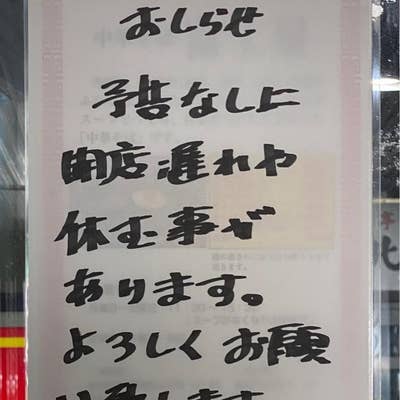 おしらせ
予告なしに
開店遅れや
休む事が
あります。
よろしくお願
い致します。